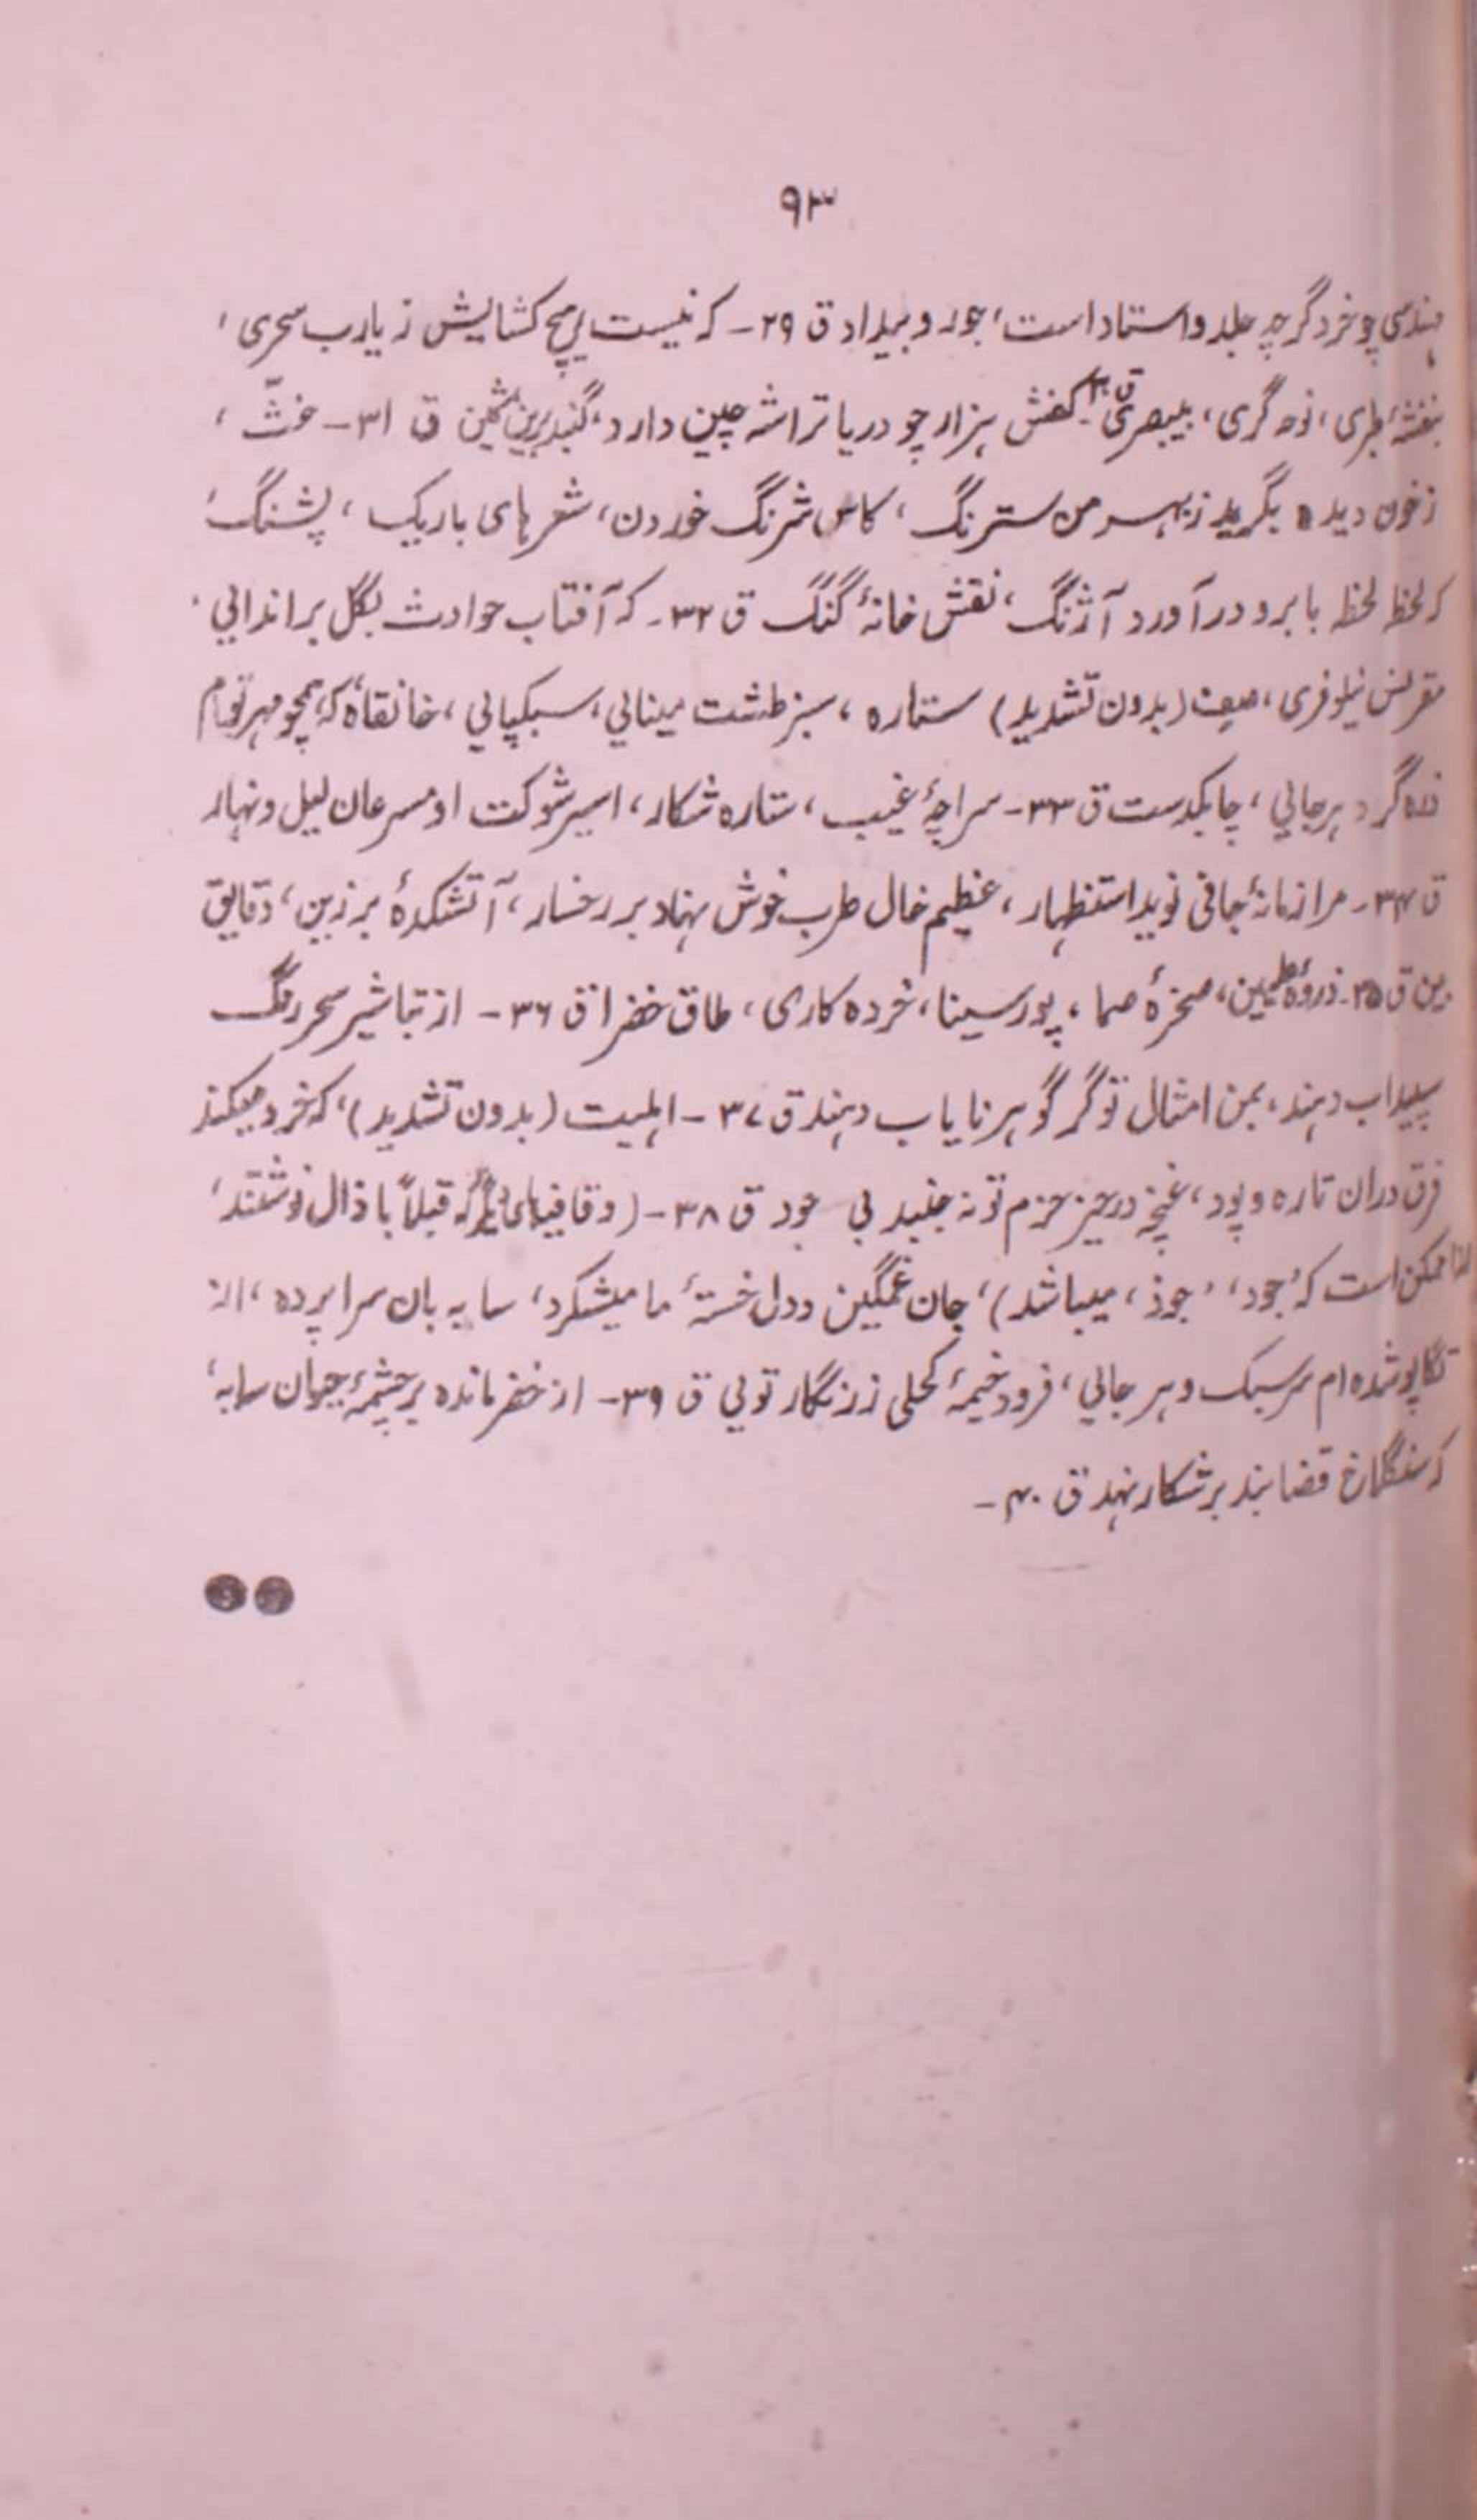 ۹۳
هندسی چو خرد گرچه جلد و استاد است، جور و بیداد ق ۲۹- که نیست هیچ کشایش ز یارب سحری،
بنفشه طری، نوحه گری، بیبصری ق ۳۰- کفش هزار چو دریا تراشه چین دارد، گنبد برین ق ۳۱- غثّ،
ز خون دیده بگرید ز بهر من سترنگ، کاس شرنگ خوردن، شعرهای باریک، پشنگ،
که لحظه لحظه بابرو درآورد آژنگ، نقش خانۀ گنگ ق ۳۲- که آفتاب حوادث بگل براندائی،
مقرنس نیلوفری، صف (بدون تشدید) ستاره، سبز طشت مینائی، سبکپائی، خانقاه که همچو مهر تو ام
ذره گرد هر جائی، چابکدست ق ۳۳- سراچۀ غیب، ستاره شکار، اسیر شوکت او مسرعان لیل و نهار
ق ۳۴- مرا زمانۀ جافی نوید استظهار، عظیم خال طرب خوش نهاد بر رخسار، آتشکدۀ برزین، دقایق
بین ق ۳۵- ذروۀ صخرۀ صما، پور سینا، خرده کاری، طاق خضرا ق ۳۶- از تباشیر سحر رنگ
سپیداب دهند، بمن امثال تو گر گوهر نایاب دهند ق ۳۷- اهلیت (بدون تشدید)، که خرد میکند
فرق دران تاره و پود، غنچه در حیز حزم تو نه جنبد بی جود ق ۳۸- (و قافیهای دیگر که قبلاً با ذال نوشتند،
لذا ممکن است که 'جود'، 'جوذ' میباشد)، جان غمگین و دل خستۀ ما میشکرد، سایه بان سراپرده، از
تگاپو شده ام سر سبک و هر جائی، فرود خیمۀ کحلی زرنگار توئی ق ۳۹- از خضر مانده بر چشمۀ حیوان سایه،
که سنگلاخ قضا بند بر شکار نهد ق ۴۰-